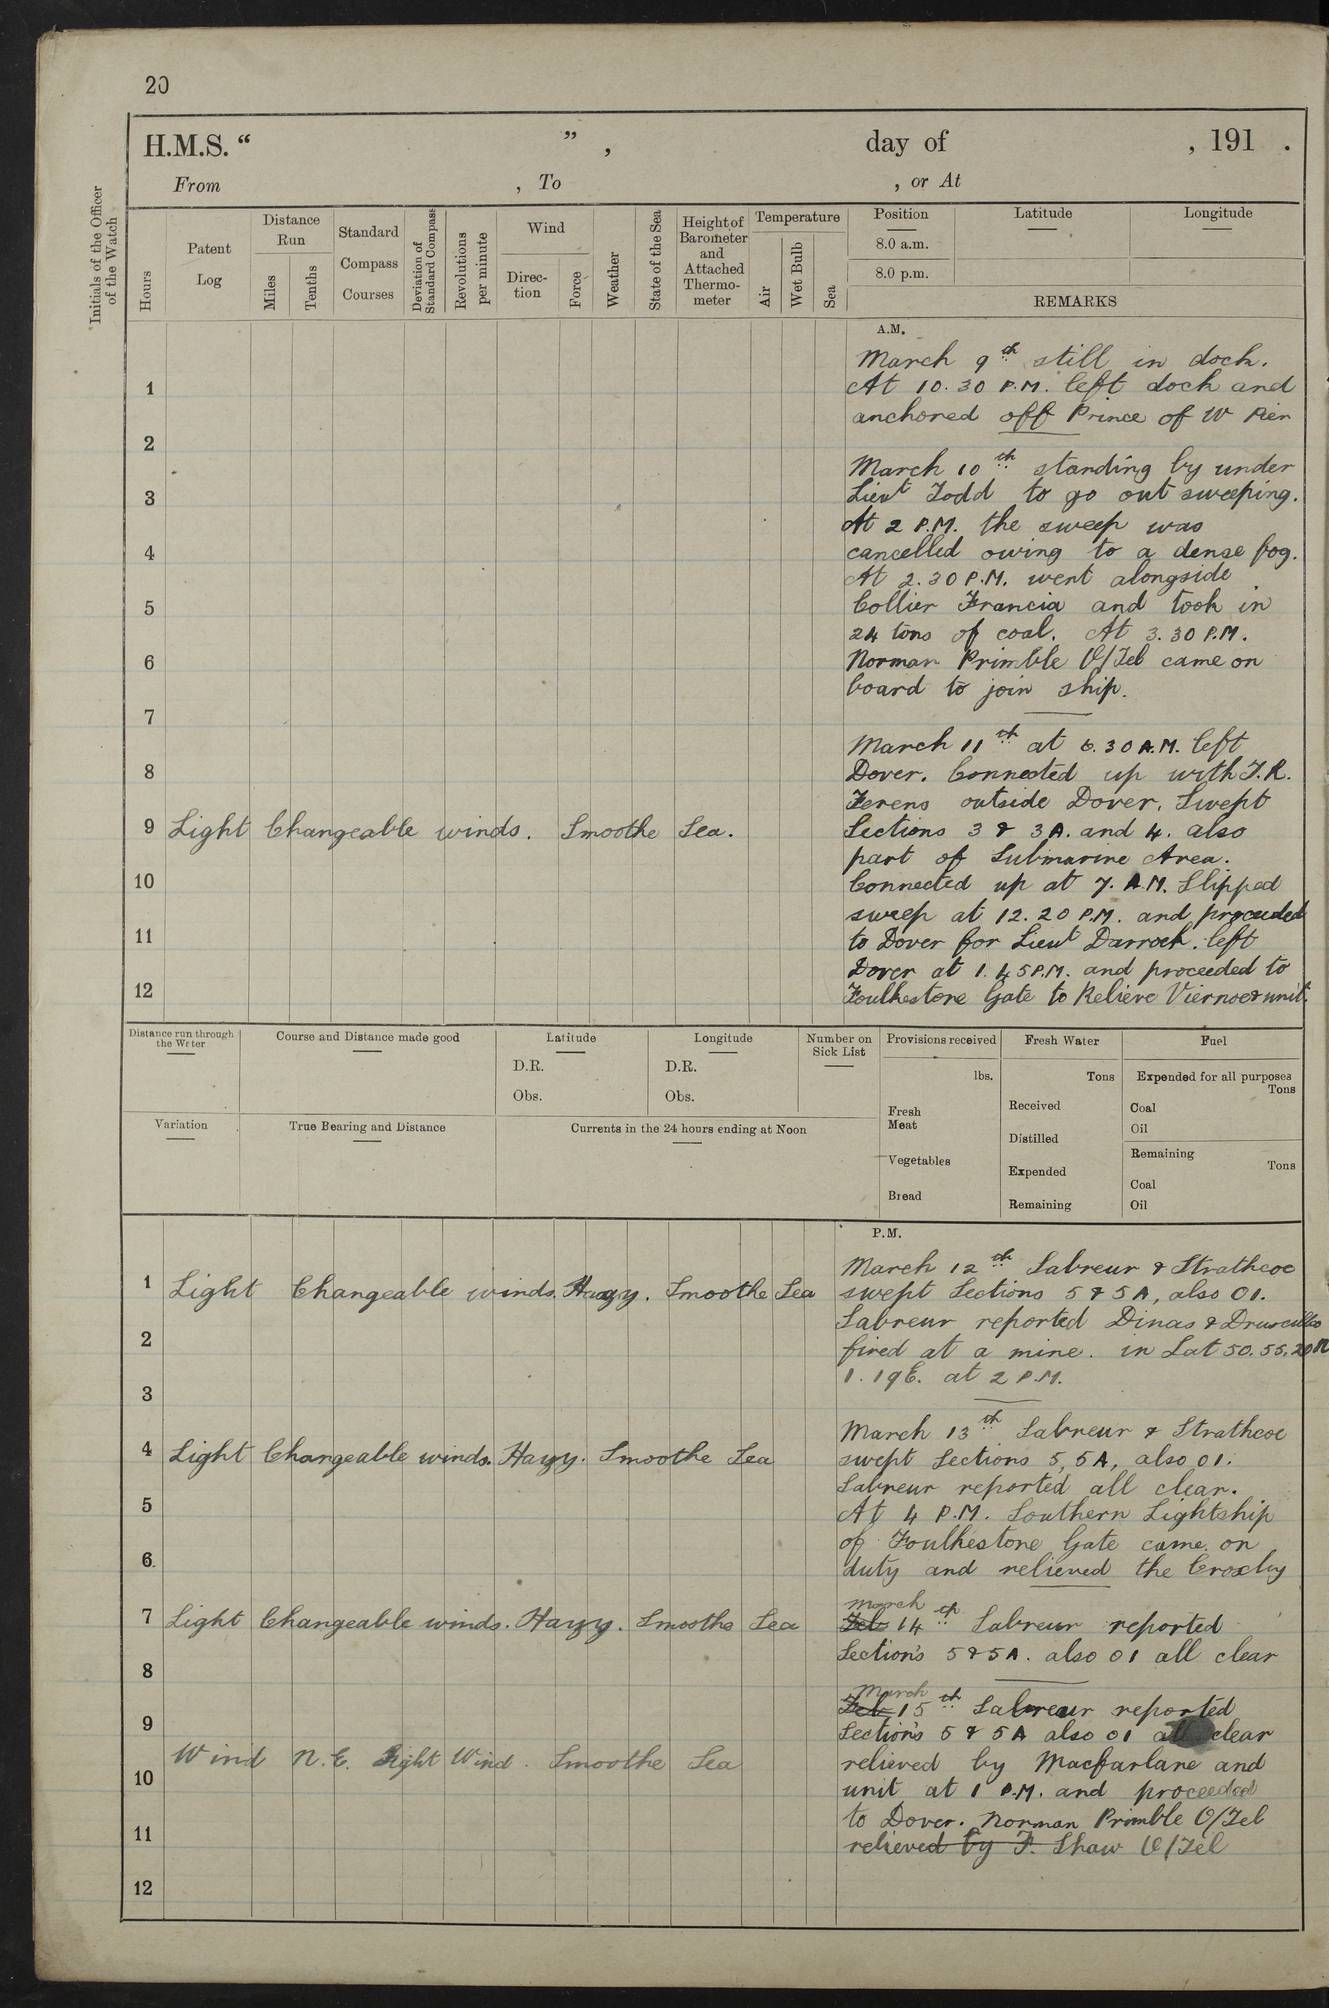 20
H.M.S. “ ” , day of , 191 .
From , To , or At
Initials of the Officer of the Watch
Hours
Patent Log
Distance Run
Miles
Tenths
Standard Compass Courses
Deviation of Standard Compass
Revolutions per minute
Wind
Direc-tion
Force
Weather
State of the Sea
Height of Barometer and Attached Thermo-meter
Temperature
Air
Wet Bulb
Sea
Position
8.0 a.m.
8.0 p.m.
Latitude
Longitude
REMARKS
A.M.
March 9th still in dock.
1
At 10.30 P.M. left dock and
anchored off Prince of W Pier
2
March 10th standing by under
3
Lieut Todd to go out sweeping.
At 2 P.M. the sweep was
4
cancelled owing to a dense fog.
At 2.30 P.M. went alongside
5
Collier Francia and took in
24 tons of coal. At 3.30 P.M.
6
Norman Primble O/Tel came on
board to join ship.
7
March 11th at 6.30 A.M. left
8
Dover. Connected up with T.R.
Ferens outside Dover. Swept
9 Light Changeable winds. Smoothe Sea.
Sections 3 & 3A. and 4. also
part of Submarine Area.
10
Connected up at 7. A.M. Slipped
sweep at 12.20 P.M. and proceeded
11
to Dover for Lieut Darroch. left
Dover at 1.45 P.M. and proceeded to
12
Foulkestone Gate to Relieve Viernoe & unit.
Distance run through the Water
Course and Distance made good
Latitude
D.R.
Obs.
Longitude
D.R.
Obs.
Number on Sick List
Provisions received
lbs.
Fresh Meat
Vegetables
Bread
Fresh Water
Tons
Received
Distilled
Expended
Remaining
Fuel
Expended for all purposes
Tons
Coal
Oil
Remaining
Tons
Coal
Oil
Variation
True Bearing and Distance
Currents in the 24 hours ending at Noon
P.M.
March 12th Sabreur & Strathcoe
1 Light Changeable winds. Hazy. Smoothe Sea
swept Sections 5 & 5A, also 01.
Sabreur reported Dinas & Druscilla
2
fired at a mine. in Lat 50.55.20N
1.19E. at 2 P.M.
3
March 13th Sabreur & Strathcoe
4 Light Changeable winds. Hazy. Smoothe Sea
swept Sections 5, 5A, also 01.
Sabreur reported all clear.
5
At 4 P.M. Southern Lightship
of Foulkestone Gate came on
6
duty and relieved the Croxby
March
7 Light Changeable winds. Hazy. Smoothe Sea
Feb 14th Sabreur reported
Section's 5 & 5A. also 01 all clear
8
March
Feb 15th Sabreur reported
9
Section's 5 & 5A also 01 all clear
Wind N.E. Light Wind. Smoothe Sea
relieved by Macfarlane and
10
unit at 1 P.M. and proceeded
to Dover. Norman Primble O/Tel
11
relieved by F. Shaw O/Tel
12